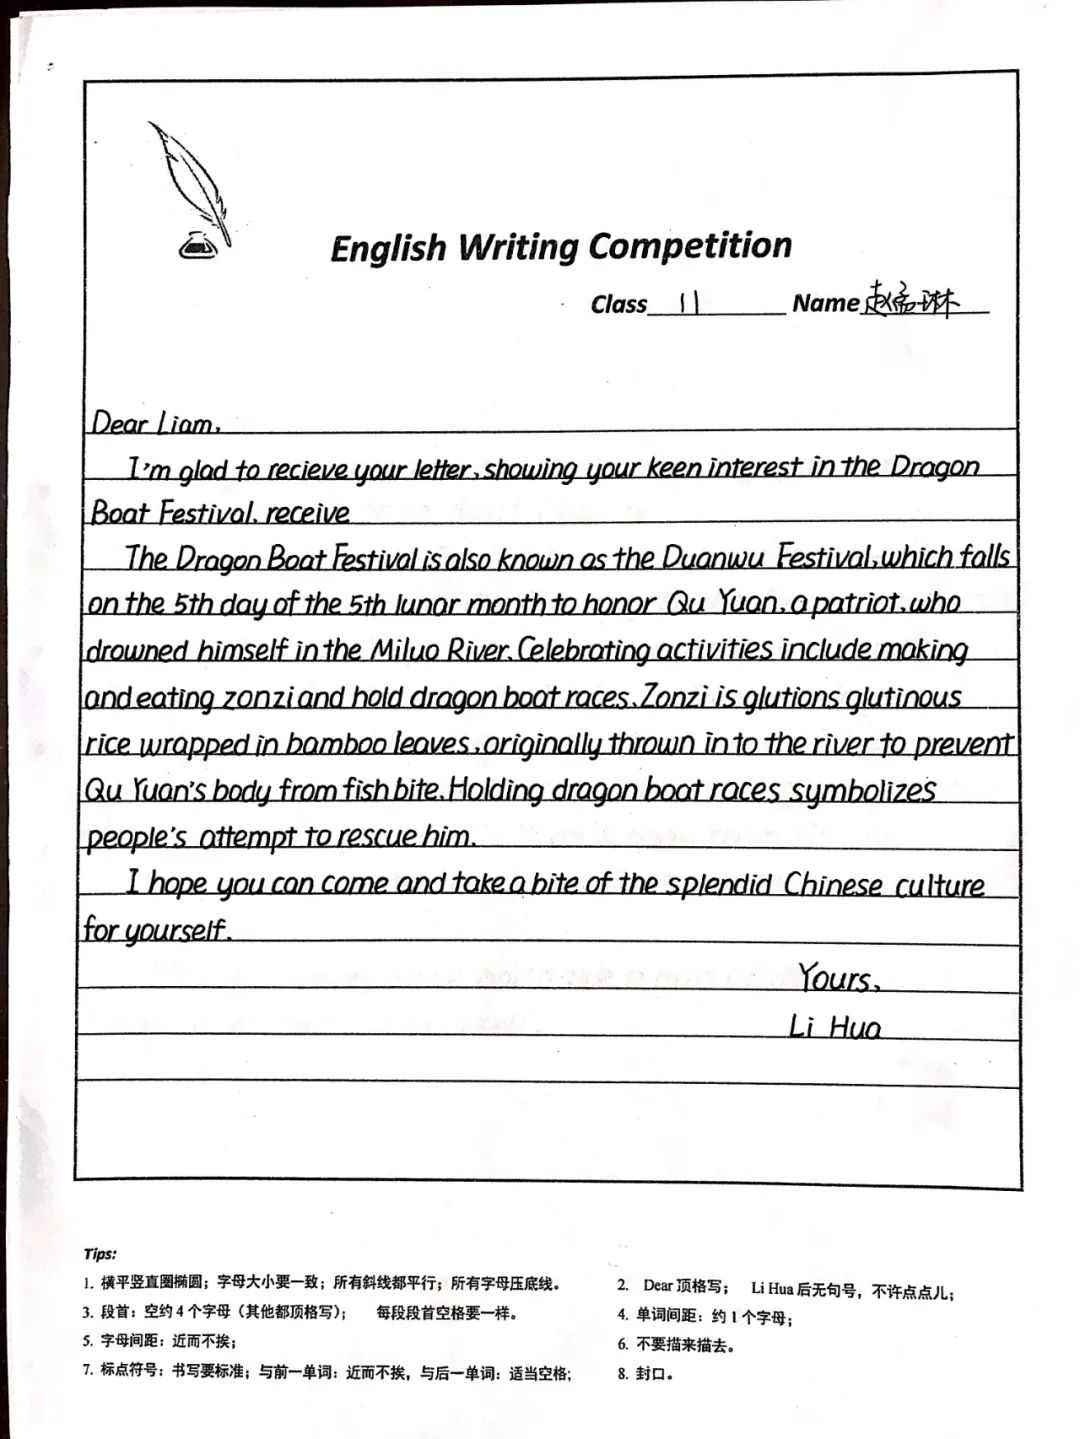 English Writing Competition
Class 11 Name 赵孟琳
Dear Liam,
I'm glad to recieve your letter, showing your keen interest in the Dragon
Boat Festival. receive
The Dragon Boat Festival is also known as the Duanwu Festival, which falls
on the 5th day of the 5th lunar month to honor Qu Yuan, a patriot, who
drowned himself in the Miluo River. Celebrating activities include making
and eating zonzi and hold dragon boat races. Zonzi is glutions glutinous
rice wrapped in bamboo leaves, originally thrown into the river to prevent
Qu Yuan's body from fish bite. Holding dragon boat races symbolizes
people's attempt to rescue him.
I hope you can come and take a bite of the splendid Chinese culture
for yourself.
Yours,
Li Hua
Tips:
1. 横平竖直圈椭圆；字母大小要一致；所有斜线都平行；所有字母压底线。
2. Dear 顶格写； Li Hua 后无句号，不许点点儿；
3. 段首：空约 4 个字母（其他都顶格写）； 每段段首空格要一样。
4. 单词间距：约 1 个字母；
5. 字母间距：近而不挨；
6. 不要描来描去。
7. 标点符号：书写要标准；与前一单词：近而不挨，与后一单词：适当空格；
8. 封口。